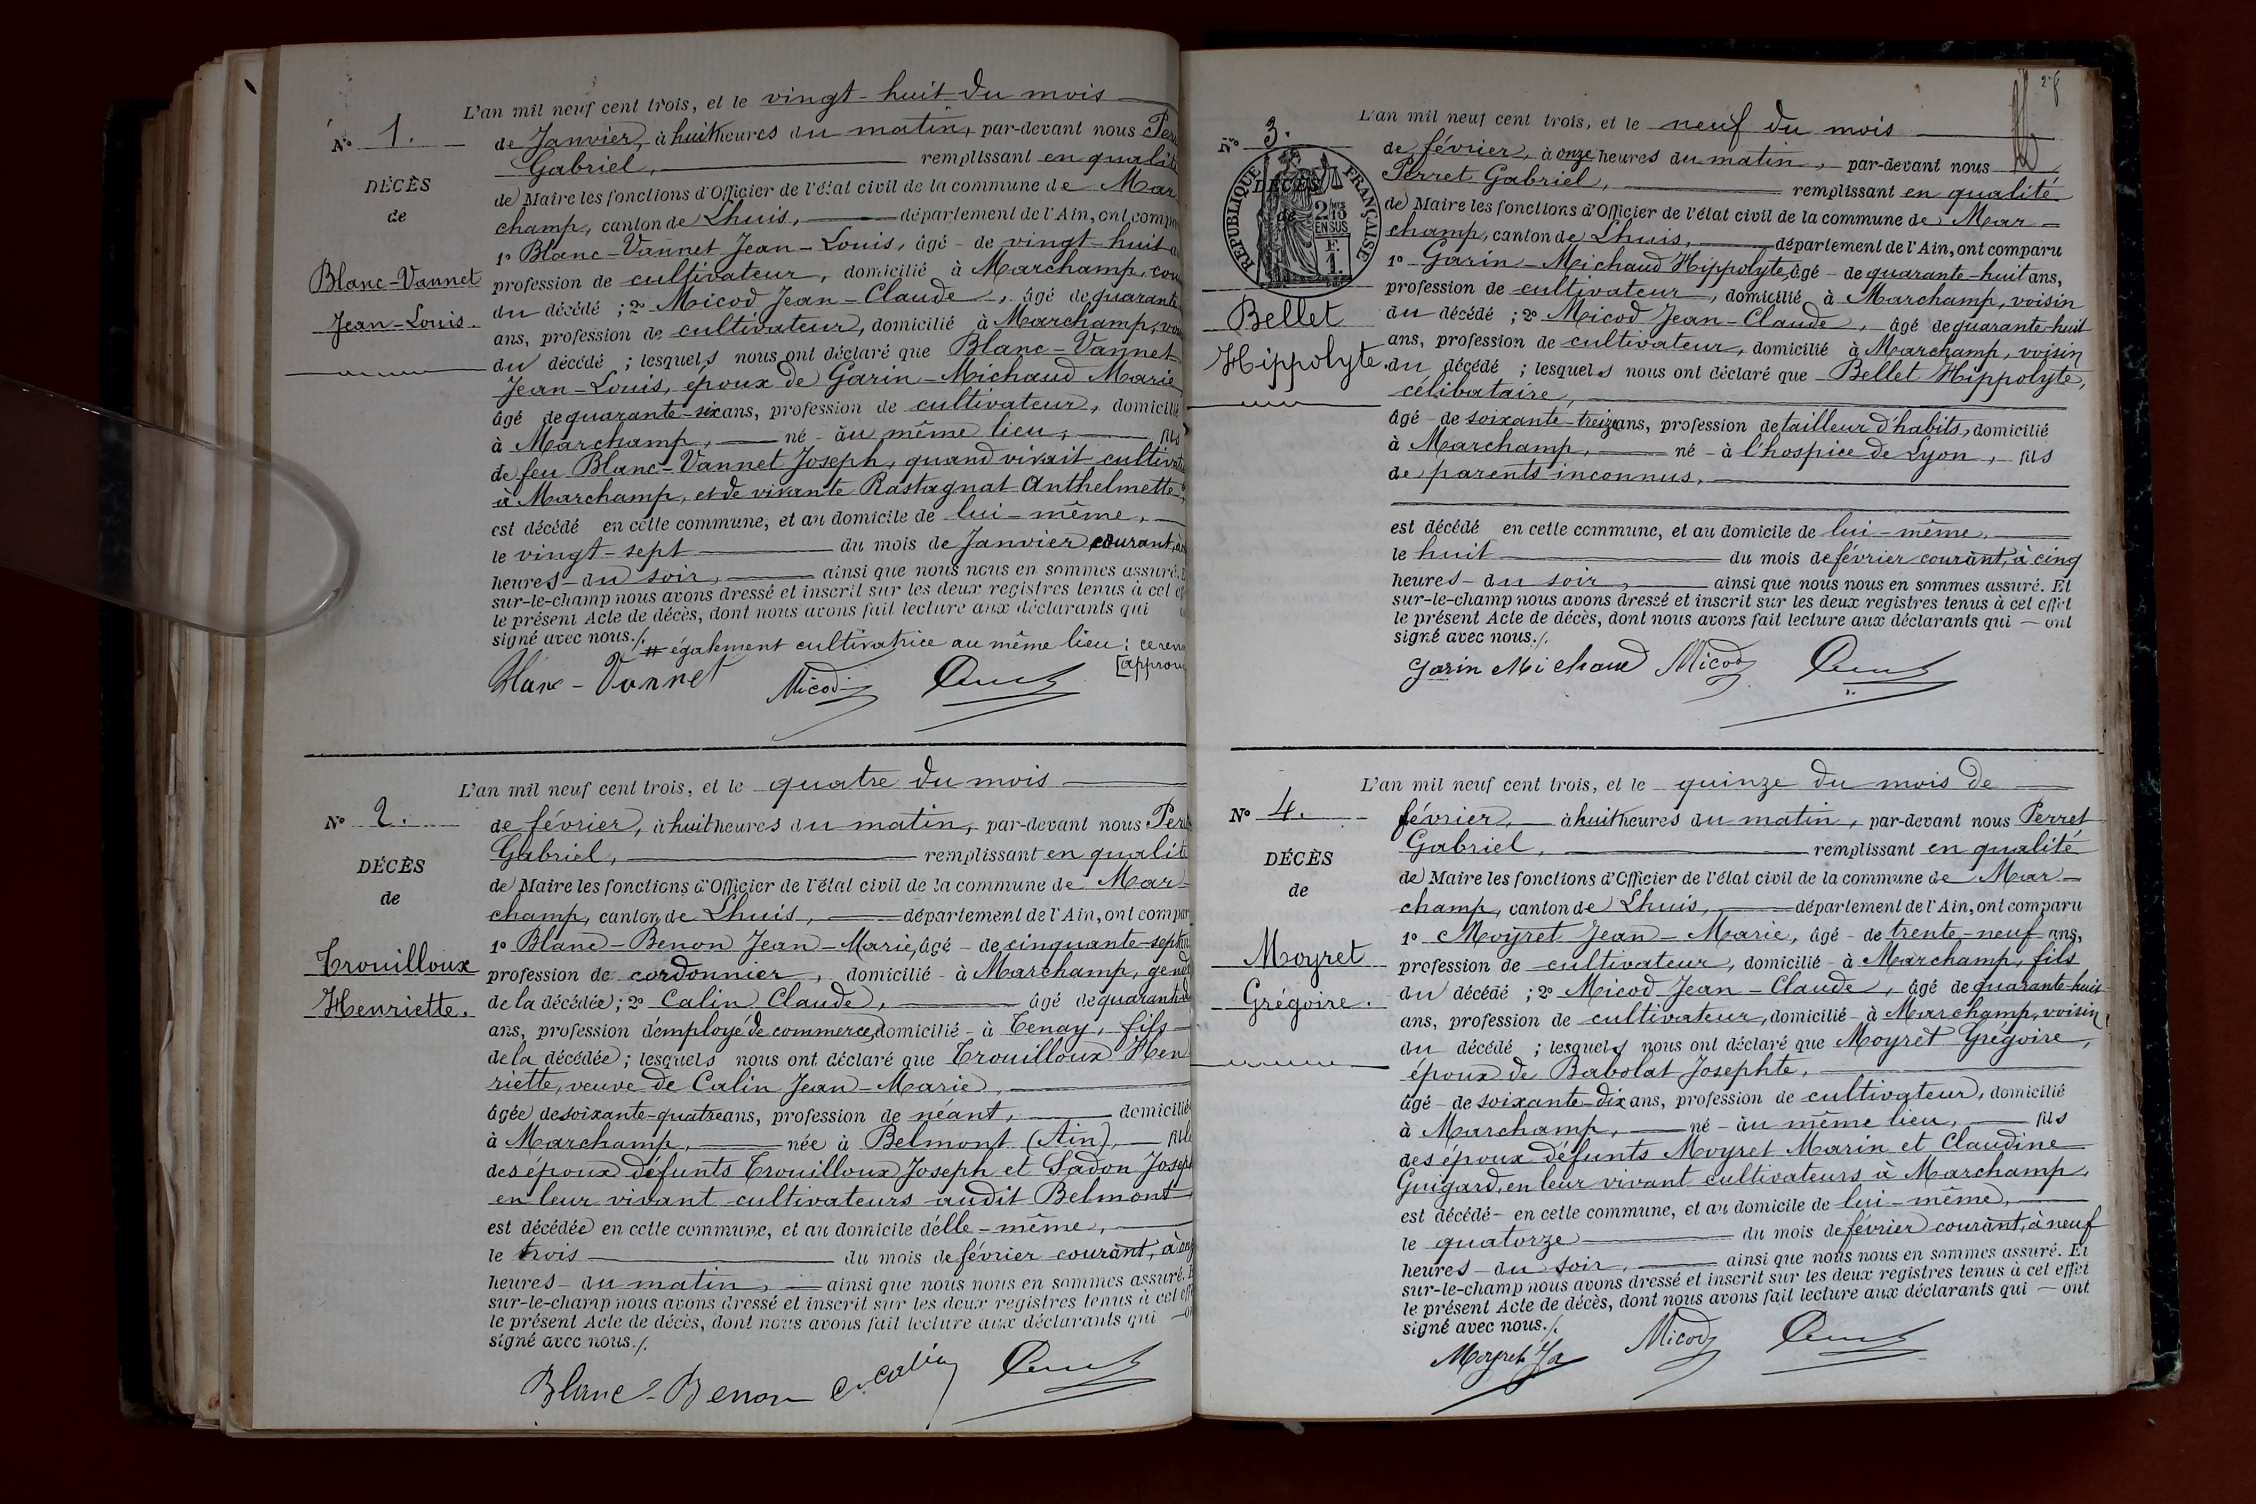 L'an mil neuf cent trois, et le vingt-huit du mois
N° 1.
de Janvier, à huit heures du matin, par-devant nous
Gabriel, remplissant en qualité
DÉCÈS
de Maire les fonctions d'Officier de l'état civil de la commune de Mar
de
champ, canton de Lhuis, département de l'Ain, ont
1° Blanc-Vannet Jean-Louis, âgé de vingt-huit
Blanc-Vannet
profession de cultivateur, domicilié à Marchamp,
Jean-Louis.
du décédé ; 2° Micod Jean-Claude, âgé de quarante
ans, profession de cultivateur, domicilié à Marchamp,
du décédé ; lesquels nous ont déclaré que Blanc-Vannet
Jean-Louis, époux de Garin-Michaud Marie
âgé de quarante-six ans, profession de cultivateur, domicilié
à Marchamp, né au même lieu, fils
de feu Blanc-Vannet Joseph, quand vivait
à Marchamp, et de vivante Rastagnat Anthelmette,
est décédé en cette commune, et au domicile de lui-même,
le vingt-sept du mois de Janvier courant,
heures du soir, ainsi que nous nous en sommes assuré.
sur-le-champ nous avons dressé et inscrit sur les deux registres tenus à cet
le présent Acte de décès, dont nous avons fait lecture aux déclarants qui
signé avec nous./.
# également cultivatrice au même lieu ; ce
Blanc-Vannet Micod
L'an mil neuf cent trois, et le quatre du mois
N° 2.
de février, à huit heures du matin, par-devant nous
Gabriel, remplissant en qualité
DÉCÈS
de Maire les fonctions d'Officier de l'état civil de la commune de Mar-
de
champ, canton de Lhuis, département de l'Ain, ont
1° Blanc-Benon Jean-Marie, âgé de cinquante-sept
Trouilloux
profession de cordonnier, domicilié à Marchamp,
Henriette.
de la décédée ; 2° Calin Claude, âgé de
ans, profession d'employé de commerce, domicilié à Tenay, fils
de la décédée ; lesquels nous ont déclaré que Trouilloux Hen
riette, veuve de Calin Jean-Marie,
âgée de soixante-quatre ans, profession de néant, domiciliée
à Marchamp, née à Belmont (Ain),
des époux défunts Trouilloux Joseph et Sadon
en leur vivant cultivateurs audit Belmont
est décédée en cette commune, et au domicile d'elle-même,
le trois du mois de février courant, à
heures du matin, ainsi que nous nous en sommes assuré.
sur-le-champ nous avons dressé et inscrit sur les deux registres tenus à cet
le présent Acte de décès, dont nous avons fait lecture aux déclarants qui
signé avec nous./.
Blanc-Benon C. Calin
L'an mil neuf cent trois, et le neuf du mois
N° 3.
de février, à onze heures du matin, par-devant nous
Perret Gabriel, remplissant en qualité
RÉPUBLIQUE FRANÇAISE
DÉCÈS
de
2/10 EN SUS
F. 1.
de Maire les fonctions d'Officier de l'état civil de la commune de Mar-
champ, canton de Lhuis, département de l'Ain, ont comparu
1° Garin-Michaud Hippolyte, âgé de quarante-huit ans,
profession de cultivateur, domicilié à Marchamp, voisin
Bellet
du décédé ; 2° Micod Jean-Claude, âgé de quarante-huit
ans, profession de cultivateur, domicilié à Marchamp, voisin
Hippolyte.
du décédé ; lesquels nous ont déclaré que Bellet Hippolyte,
célibataire,
âgé de soixante-treize ans, profession de tailleur d'habits, domicilié
à Marchamp, né à l'hospice de Lyon, fils
de parents inconnus.
est décédé en cette commune, et au domicile de lui-même,
le huit du mois de février courant, à cinq
heures du soir, ainsi que nous nous en sommes assuré. Et
sur-le-champ nous avons dressé et inscrit sur les deux registres tenus à cet effet
le présent Acte de décès, dont nous avons fait lecture aux déclarants qui ont
signé avec nous./.
Garin Michaud Micod
L'an mil neuf cent trois, et le quinze du mois de
N° 4.
février, à huit heures du matin, par-devant nous Perret
Gabriel, remplissant en qualité
DÉCÈS
de Maire les fonctions d'Officier de l'état civil de la commune de Mar-
de
champ, canton de Lhuis, département de l'Ain, ont comparu
1° Moyret Jean-Marie, âgé de trente-neuf ans,
Moyret
profession de cultivateur, domicilié à Marchamp, fils
Grégoire.
du décédé ; 2° Micod Jean-Claude, âgé de quarante-huit
ans, profession de cultivateur, domicilié à Marchamp, voisin
du décédé ; lesquels nous ont déclaré que Moyret Grégoire,
époux de Babolat Josephte,
âgé de soixante-dix ans, profession de cultivateur, domicilié
à Marchamp, né au même lieu, fils
des époux défunts Moyret Marin et Claudine
Guigard, en leur vivant cultivateurs à Marchamp,
est décédé en cette commune, et au domicile de lui-même,
le quatorze du mois de février courant, à neuf
heures du soir, ainsi que nous nous en sommes assuré. Et
sur-le-champ nous avons dressé et inscrit sur les deux registres tenus à cet effet
le présent Acte de décès, dont nous avons fait lecture aux déclarants qui ont
signé avec nous./.
Moyret Micod